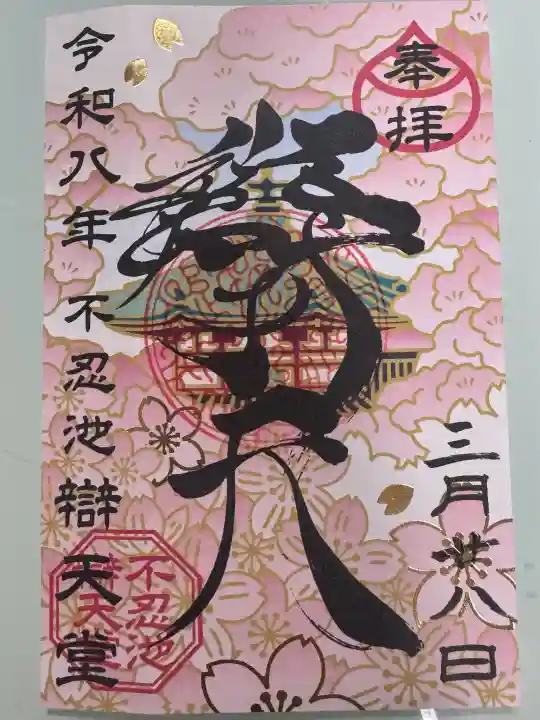 奉拝
三月廿八日
辯才天
令和八年 不忍池辯天堂
不忍池
辯天堂